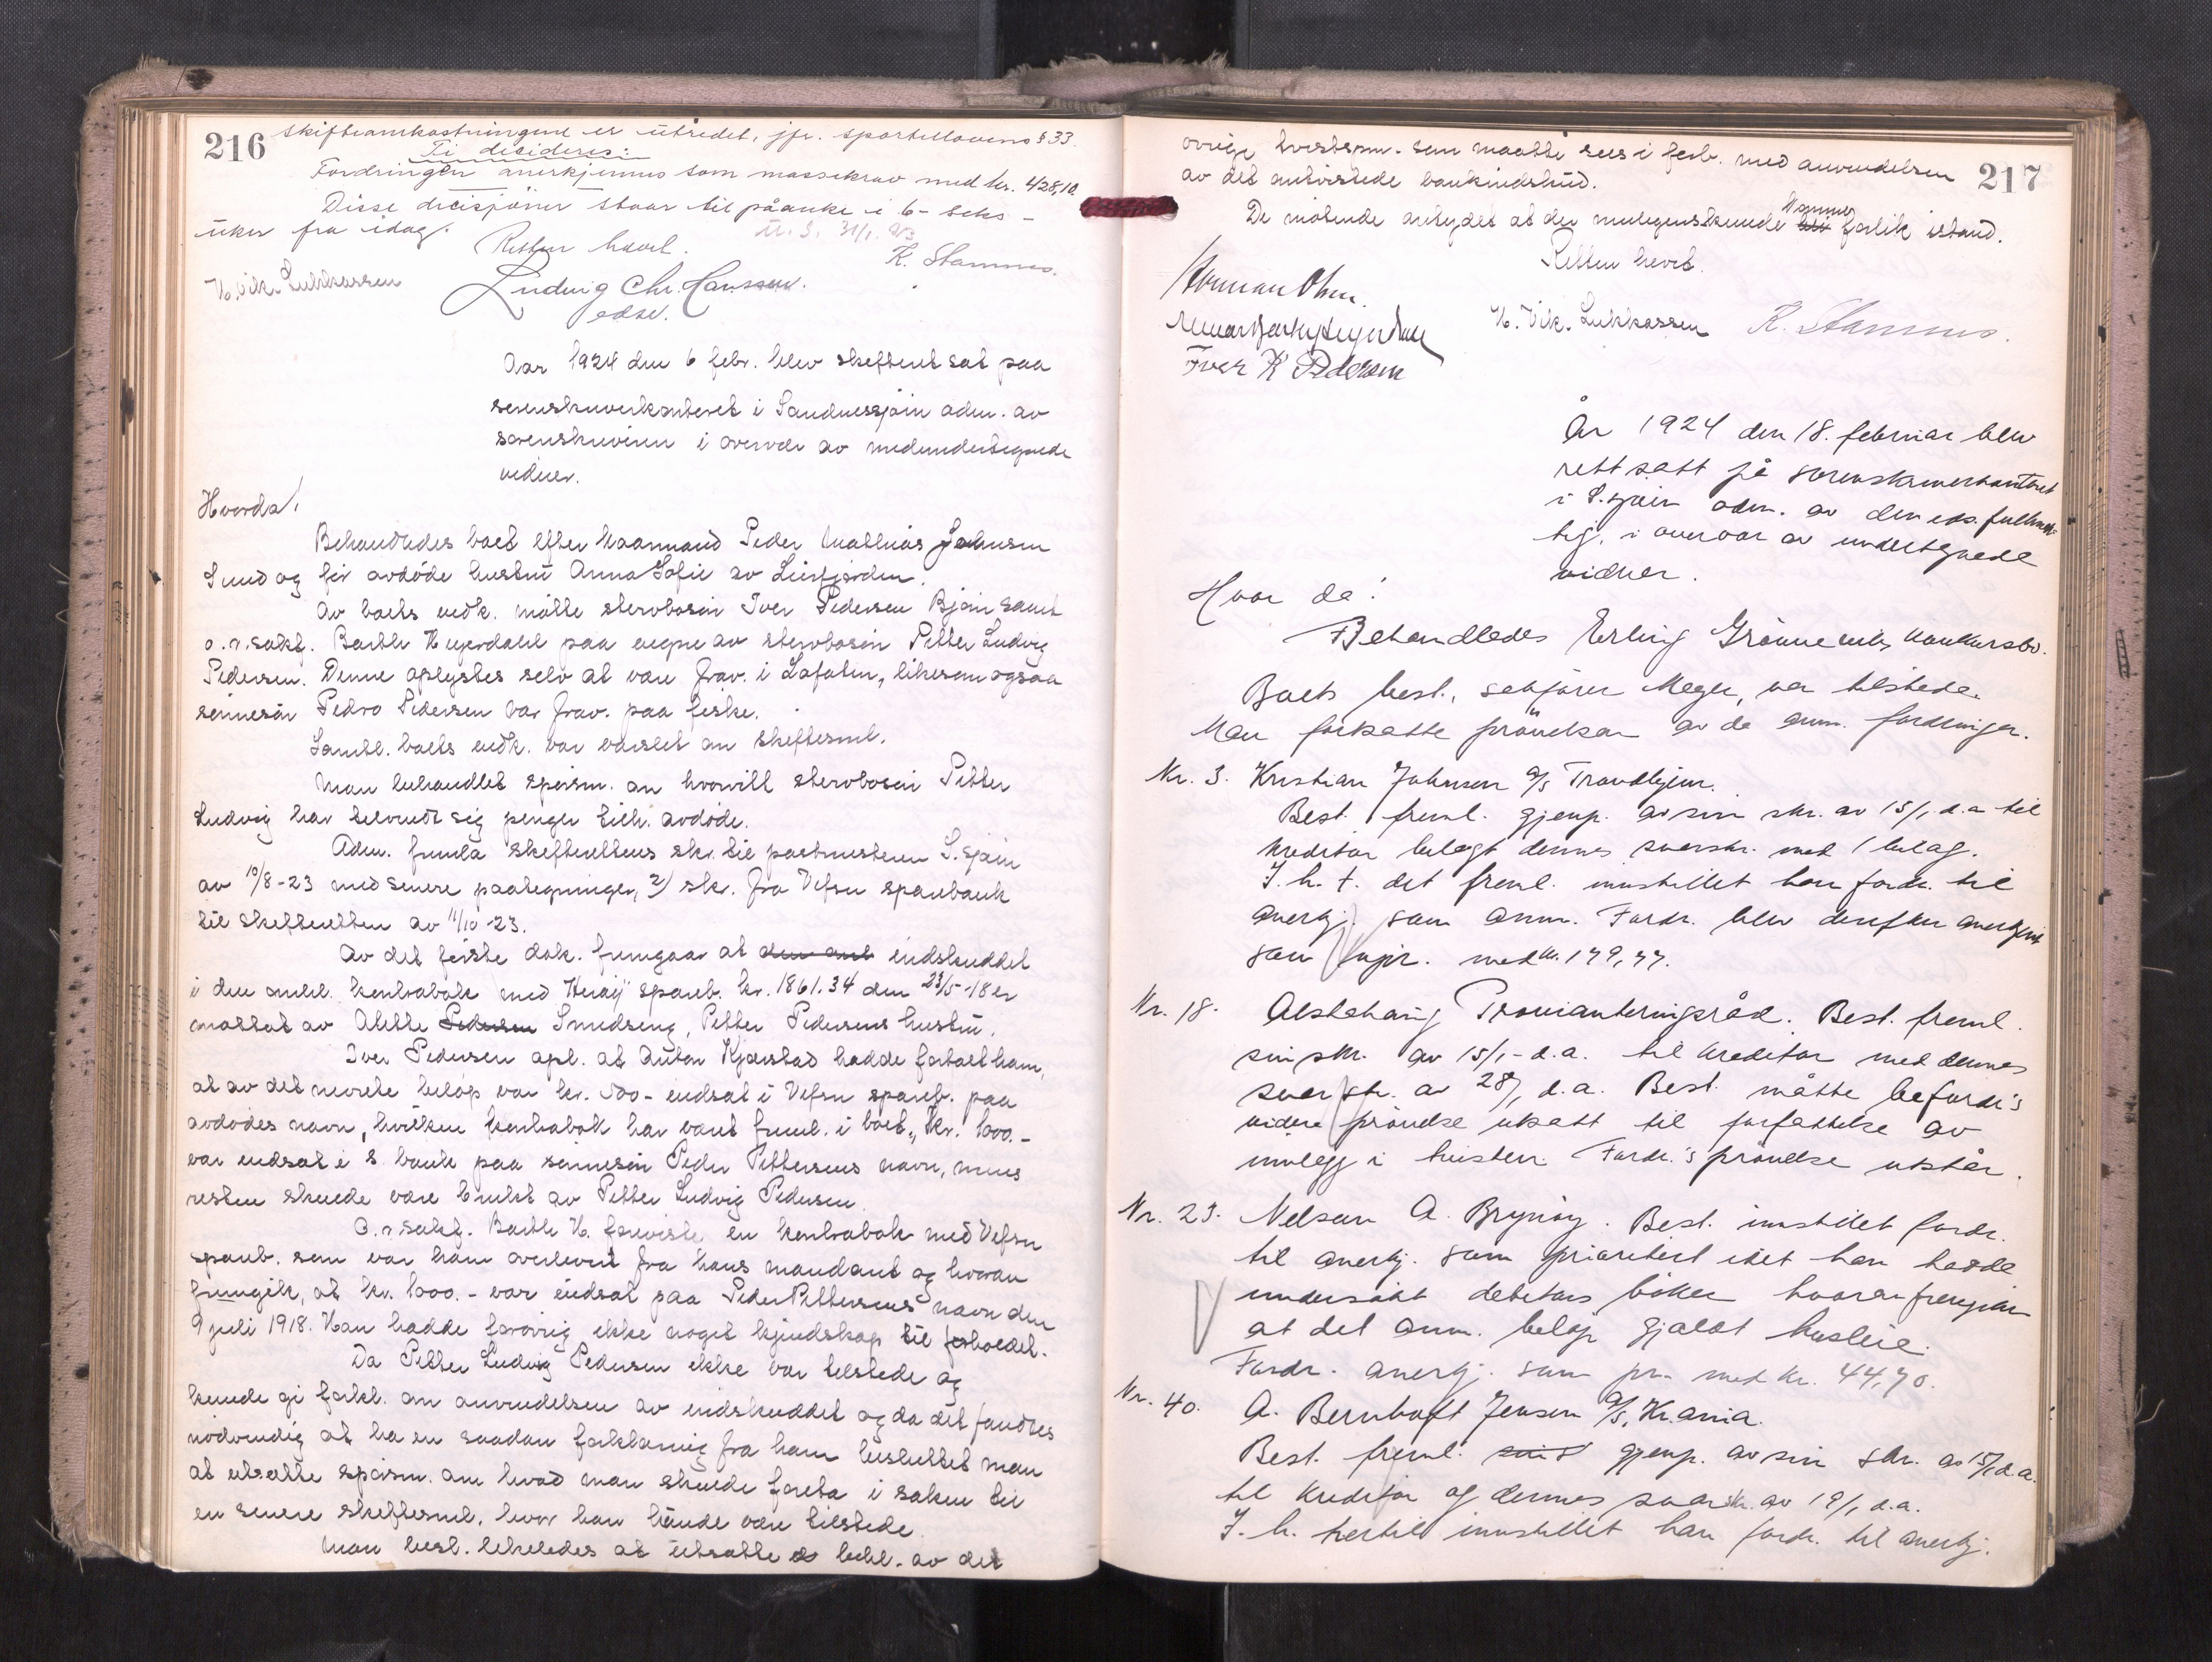 216
skifteomkostningene er utredet, jfr. sportellovens § 33.
Ti decideres:
Fordringen anerkjennes som massekrav med kr. 428,10.
Disse decisjoner staar til påanke i 6 - seks -
uker fra idag.
Retten hævet.
H. Vik. Lukkassen
Ludvig Chr. Hanssen.
edsv.
K. Stamnes.
Aar 1924 den 6 febr. blev skifteret sat paa
sorenskriverkontoret i Sandnessjøen adm. av
sorenskriveren i overvær av medundertegnede
vidner.
Hvorda!
Behandledes boet efter kaarmand Peder Mathias Johnsen
Sund og før avdøde hustru Anna Sofie av Leirfjorden.
Av boets vedk. møtte stervbosøn Iver Pedersen Bjørn samt
o.r.sakf. Barth Heyerdahl paa vegne av stervbosøn Petter Ludvig
Pedersen. Denne oplystes selv at være frav. i Lofoten, likesom ogsaa
sønnesøn Pedro Pedersen var frav. paa fiske.
Samtl. boets vedk. var varslet om skiftesml.
Man behandlet spørsm. om hvorvidt stervbosøn Petter
Ludvig har tilvendt sig penger tilh. avdøde.
Adm. fremla skifterettens skr. til postmesteren S.sjøen
av 10/8-23 med senere paategninger, 2) skr. fra Vefsn sparebank
til skifteretten av 11/10 23.
Av det første dok. fremgaar at den anl indskuddet
i den omhl. kontrabok med Herøy spareb. kr. 1861.34 den 23/5-18 er
mottat av Alette Pedersen Smedseng, Petter Pedersens hustru.
Iver Pedersen opl. at Anton Kjærstad hadde fortalt ham,
at av det nævnte beløp var kr. 500 - indsat i Vefsn spareb. paa
avdødes navn, hvilken kontrabok har været freml. i boet, kr. 1000.-
var indsat i s. bank paa sønnesøn Peder Pettersens navn, mens
resten skulde være brukt av Petter Ludvig Pedersen.
O.r.sakf. Barth H. foreviste en kontrabok med Vefsn
spareb. som var ham overlevert fra hans mandant og hvorav
fremgik, at kr. 1000.- var indsat paa Peder Pettersens navn den
9 juli 1918. Han hadde forøvrig ikke noget kjendskap til forholdet.
Da Petter Ludvig Pedersen ikke var tilstede og
kunde gi forkl. om anvendelsen av indskuddet og da det fandtes
nødvendig at ha en saadan forklaring fra ham besluttet man
at utsætte spørsm. om hvad man skulde foreta i saken til
en senere skiftesml. hvor han kunde være tilstede.
Man besl. likeledes at utsætte behl. av det
217
øvrige tvistspm. som maatte rees i forb. med anvendelsen
av det omtvistede bankindskud.
De møtende antydet at der muligens kunde komme forlik istand.
Retten hevet.
Herman Ohm.
Barth Heyerdahl
Iver K Pedersen
H. Vik. Lukkassen
K. Stamnes.
År 1924 den 18. februar blev
rett satt på sorenskriverkontoret
i S.sjøen adm. av den eds. fullmek-
tig, i overvær av undertegnede
vidner.
Hvor da!
Behandledes Erling Grønneviks konkursbo.
Boets best., sakfører Meyer, var tilstede.
Man forsatte prøvelsen av de anm. fordringer.
Nr. 3. Kristian Johnsen A/S Trondhjem.
Best. freml. gjenp. av sin skr. av 15/1. d.a. til
kreditor bilagt dennes svarskr. med 1 bilag.
I. h. t. det freml. innstillet han fordr. til
anerkj. som anm. Fordr. blev derefter anerkjent
som upr. med kr. 179,77.
Nr. 18. Alstahaug Provianteringsråd. Best. freml.
sin skr. av 15/1 - d.a. til kreditor med dennes
svarskr. av 28/1 d.a. Best. måtte beg fordr's
videre prøvelse utsatt til forfattelse av
innlegg i tvisten. Fordr.'s prøvelse utstår.
Nr. 23. Nelson A. Brynøy. Best. innstillet fordr.
til anerkj. som prioritert idet han hadde
undersøkt debitors bøker hvorav fremgår
at det anm. beløp gjaldt husleie.
Fordr. anerkj. som pr. med kr. 44,70.
Nr. 40. A. Bernhoft Jensen A/S, Kr.ania.
Best. freml. sin gjenp. av sin skr. av 15/1 d.a.
til kreditor og dennes svarskr. av 19/1 d.a.
I. h. hertil innstillet han fordr. til anerkj.